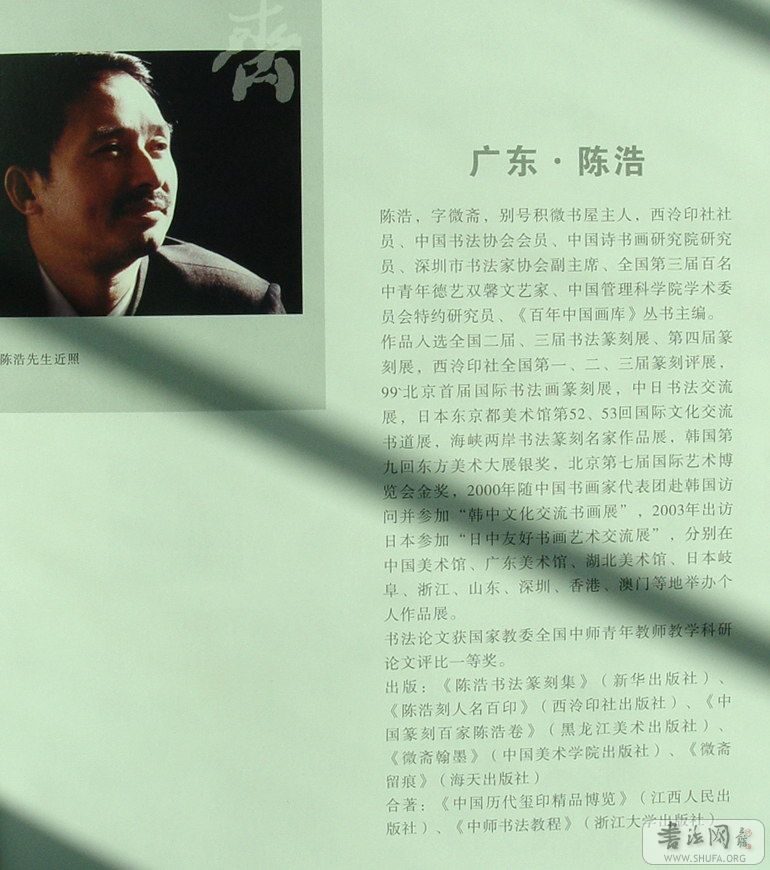 齋
广东·陈浩
陈浩先生近照
陈浩，字微斋，别号积微书屋主人，西泠印社社
员、中国书法协会会员、中国诗书画研究院研究
员、深圳市书法家协会副主席、全国第三届百名
中青年德艺双馨文艺家、中国管理科学院学术委
员会特约研究员、《百年中国画库》丛书主编。
作品入选全国二届、三届书法篆刻展、第四届篆
刻展，西泠印社全国第一、二、三届篆刻评展，
99`北京首届国际书法画篆刻展，中日书法交流
展，日本东京都美术馆第52、53回国际文化交流
书道展，海峡两岸书法篆刻名家作品展，韩国第
九回东方美术大展银奖，北京第七届国际艺术博
览会金奖，2000年随中国书画家代表团赴韩国访
问并参加“韩中文化交流书画展”，2003年出访
日本参加“日中友好书画艺术交流展”，分别在
中国美术馆、广东美术馆、湖北美术馆、日本岐
阜、浙江、山东、深圳、香港、澳门等地举办个
人作品展。
书法论文获国家教委全国中师青年教师教学科研
论文评比一等奖。
出版：《陈浩书法篆刻集》（新华出版社）、
《陈浩刻人名百印》（西泠印社出版社）、《中
国篆刻百家陈浩卷》（黑龙江美术出版社）、
《微斋翰墨》（中国美术学院出版社）、《微斋
留痕》（海天出版社）
合著：《中国历代玺印精品博览》（江西人民出
版社）、《中师书法教程》（浙江大学出版社）
书法网
WWW.SHUFA.ORG